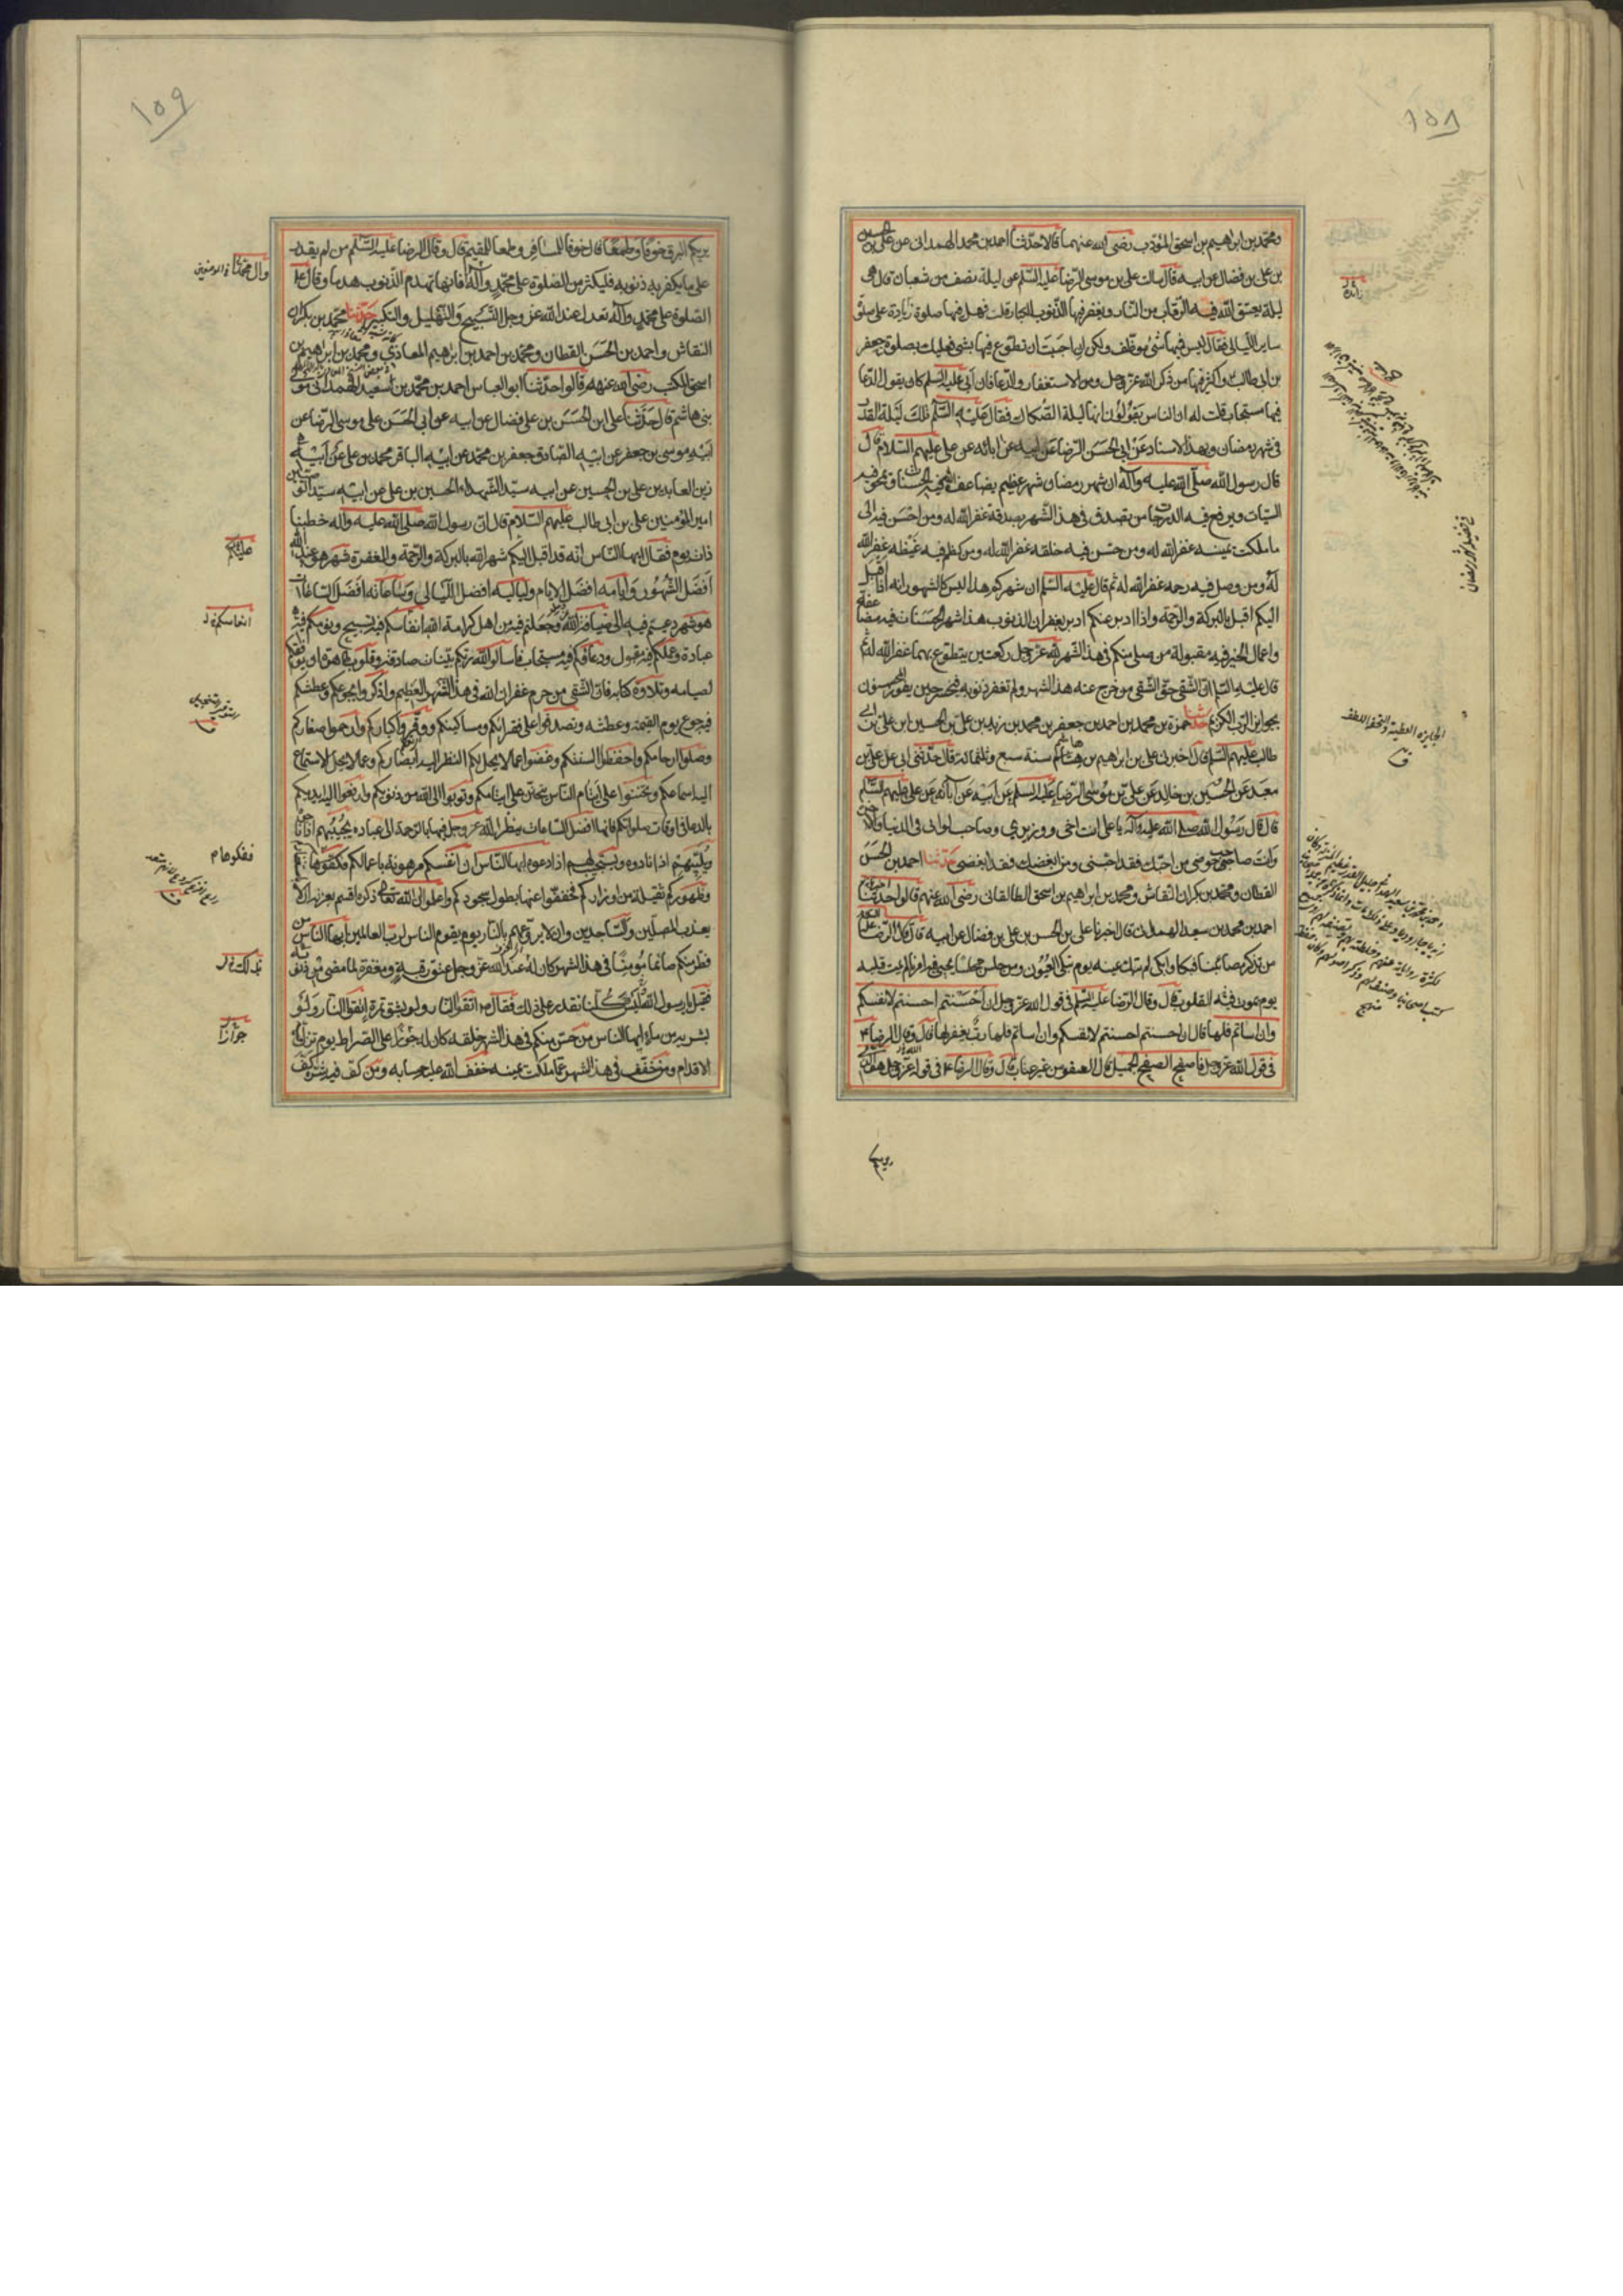 ١٥٨
ومحمد بن ابراهيم بن اسحق المؤدب رضى الله عنهما قالا حدثنا احمد بن محمد الهمدانى عن على بن الحسين
بن على بن فضال عن ابيه قال سالت على بن موسى الرضا عليه السلم عن ليلة نصف من شعبان قال هى
ليلة يعتق الله فيها الرقاب من النار ويغفر فيها الذنوب الكبار قلت فهل فيها صلوة زيادة على صلوة
ساير الليالى فقال ليس فيها شئ موظف ولكن ان احببت ان تطوع فيها بشئ فعليك بصلوة جعفر
بن أبى طالب ع واكثر فيها من ذكر الله عز وجل ومن الاستغفار والدعا فان أبى عليه السلم كان يقول الدعا
فيها مستجاب قلت له ان الناس يقولون انها ليلة الصكاك فقال عليه السلم تلك ليلة القدر
فى شهر رمضان وبهذا الاسناد عن ابى الحسن الرضا عن ابيه عن ابائه عن على عليهم السلام قال
قال رسول الله صلى الله عليه وآله ان شهر رمضان شهر عظيم يضاعف الله فيه الحسنات ويمحو فيه
السيات ويرفع فيه الدرجات من تصدق فى هذا الشهر بصدقة غفر الله له ومن احسن فيه الى
ما ملكت يمينه غفر الله له ومن حسن فيه خلقه غفر الله له ومن كظم فيه غيظه غفر الله
له ومن وصل فيه رحمه غفر الله له ثم قال عليه السلم ان شهركم هذا ليس كالشهور انه اذا اقبل
اليكم اقبل بالبركة والرحمة واذا ادبر عنكم ادبر بغفران الذنوب هذا شهر الحسنات فيه مضاعفة
واعمال الخير فيه مقبولة من صلى منكم فى هذا الشهر لله عز وجل ركعتين يتطوع بهما غفر الله له ثم
قال عليه السلم ان الشقى حق الشقى من خرج عنه هذا الشهر ولم تغفر ذنوبه فيخسر حين يفوز المحسنون
بجوايز الرب الكريم حدثنا حمزة بن محمد بن احمد بن جعفر بن محمد بن زيد بن على بن الحسين ابن على بن ابى
طالب عليهم السلم قال اخبرنى على بن ابراهيم بن هاشم سنة سبع وثلثمائة قال حدثنى ابى عن على بن
معبد عن الحسين بن خالد عن على بن موسى الرضا عليه السلم عن ابيه عن آبائه عن على عليهم السلم
قال قال رسول الله صلى الله عليه وآله يا على انت اخى ووزيرى وصاحب لوائى فى الدنيا والاخرة
وانت صاحب حوضى من احبك فقد احبنى ومن ابغضك فقد ابغضنى حدثنا احمد بن الحسن
القطان ومحمد بن بكران النقاش ومحمد بن ابراهيم بن اسحق الطالقانى رضى الله عنهم قالوا حدثنا
احمد بن محمد بن سعيد الهمدانى قال اخبرنا على بن الحسن بن على بن فضال عن ابيه قال قال الرضا عليه السلم
من تذكر مصابنا فبكا وابكى لم تبك عينه يوم تبكى العيون ومن جلس مجلسا يحيى فيه امرنا لم يمت قلبه
يوم تموت فيه القلوب قال وقال الرضا عليه السلم فى قول الله عز وجل ان احسنتم احسنتم لانفسكم
وان اساتم فلها قال ان احسنتم احسنتم لانفسكم وان اساتم فلها رب يغفر لها قال وقال الرضا ع
فى قول الله عز وجل فاصفح الصفح الجميل قال العفو من غير عتاب قال وقال الرضا ع فى قول الله عز وجل هو الذى
يريكم
زائدة
فى فضيلة شهر رمضان
الجايزة العطية والتحفة واللطف
ق
١٥٩
يريكم البرق خوفا وطمعا قال خوفا للمسافر وطمعا للمقيم قال وقال الرضا عليه السلم من لم يقدر
على ما يكفر به ذنوبه فليكثر من الصلوة على محمد وآله فانها تهدم الذنوب هدما وقال ع
الصلوة على محمد وآله تعدل عند الله عز وجل التسبيح والتهليل والتكبير حدثنا محمد بن بكران
النقاش واحمد بن الحسن القطان ومحمد بن احمد بن ابراهيم المعاذى ومحمد بن ابراهيم بن
اسحق المكتب رضى الله عنهم قالوا حدثنا ابو العباس احمد بن محمد بن سعيد الهمدانى مولى
بنى هاشم قال حدثنا على ابن الحسن بن على فضال عن ابيه عن ابى الحسن على موسى الرضا عن
ابيه موسى بن جعفر عن ابيه الصادق جعفر بن محمد عن ابيه الباقر محمد بن على عن ابيه
زين العابدين على بن الحسين عن ابيه سيد الشهداء الحسين بن على عن ابيه سيد الوصيين
امير المؤمنين على بن ابى طالب عليهم السلام قال ان رسول الله صلى الله عليه وآله خطبنا
ذات يوم فقال ايها الناس انه قد اقبل اليكم شهر الله بالبركة والرحمة والمغفرة شهر هو عند الله
افضل الشهور وايامه افضل الايام ولياليه افضل الليالى وساعاته افضل الساعات
هو شهر دعيتم فيه الى ضيافة الله وجعلتم فيه من اهل كرامة الله انفاسكم فيه تسبيح ونومكم فيه
عبادة وعملكم فيه مقبول ودعاؤكم فيه مستجاب فاسالوا الله ربكم بنيات صادقة وقلوب طاهرة ان يوفقكم
لصيامه وتلاوة كتابه فان الشقى من حرم غفران الله فى هذا الشهر العظيم واذكروا بجوعكم وعطشكم
فيه جوع يوم القيمة وعطشه وتصدقوا على فقرائكم ومساكينكم ووقروا كباركم وارحموا صغاركم
وصلوا ارحامكم واحفظوا السنتكم وغضوا عما لا يحل لكم النظر اليه ابصاركم وعما لا يحل الاستماع
اليه اسماعكم وتحننوا على ايتام الناس يتحنن على ايتامكم وتوبوا الى الله من ذنوبكم وارفعوا اليه ايديكم
بالدعا فى اوقات صلواتكم فانها افضل الساعات ينظر الله عز وجل فيها بالرحمة الى عباده يجيبهم اذا ناجوه
ويلبيهم اذا نادوه ويستجيب لهم اذا دعوه ايها الناس ان انفسكم مرهونة باعمالكم ففكوها
وظهوركم ثقيلة من اوزاركم فخففوا عنها بطول سجودكم واعلموا ان الله تعالى ذكره اقسم بعزته ان لا
يعذب المصلين والساجدين وان لا يروعهم بالنار يوم يقوم الناس لرب العالمين ايها الناس من
فطر منكم صائما مؤمنا فى هذا الشهر كان له عند الله عز وجل عتق رقبة ومغفرة لما مضى من ذنوبه
فقيل يا رسول الله وليس كلنا نقدر على ذلك فقال ص اتقوا النار ولو بشق تمرة اتقوا النار ولو
بشربة من ماء ايها الناس من حسن منكم فى هذا الشهر خلقه كان له جوزا على الصراط يوم تزل فيه
الاقدام ومن خفف فى هذا الشهر عما ملكت يمينه خفف الله عليه حسابه ومن كف فيه شره كف
عليكم
انفاسكم
ففكوها م
بذلك
جوازا